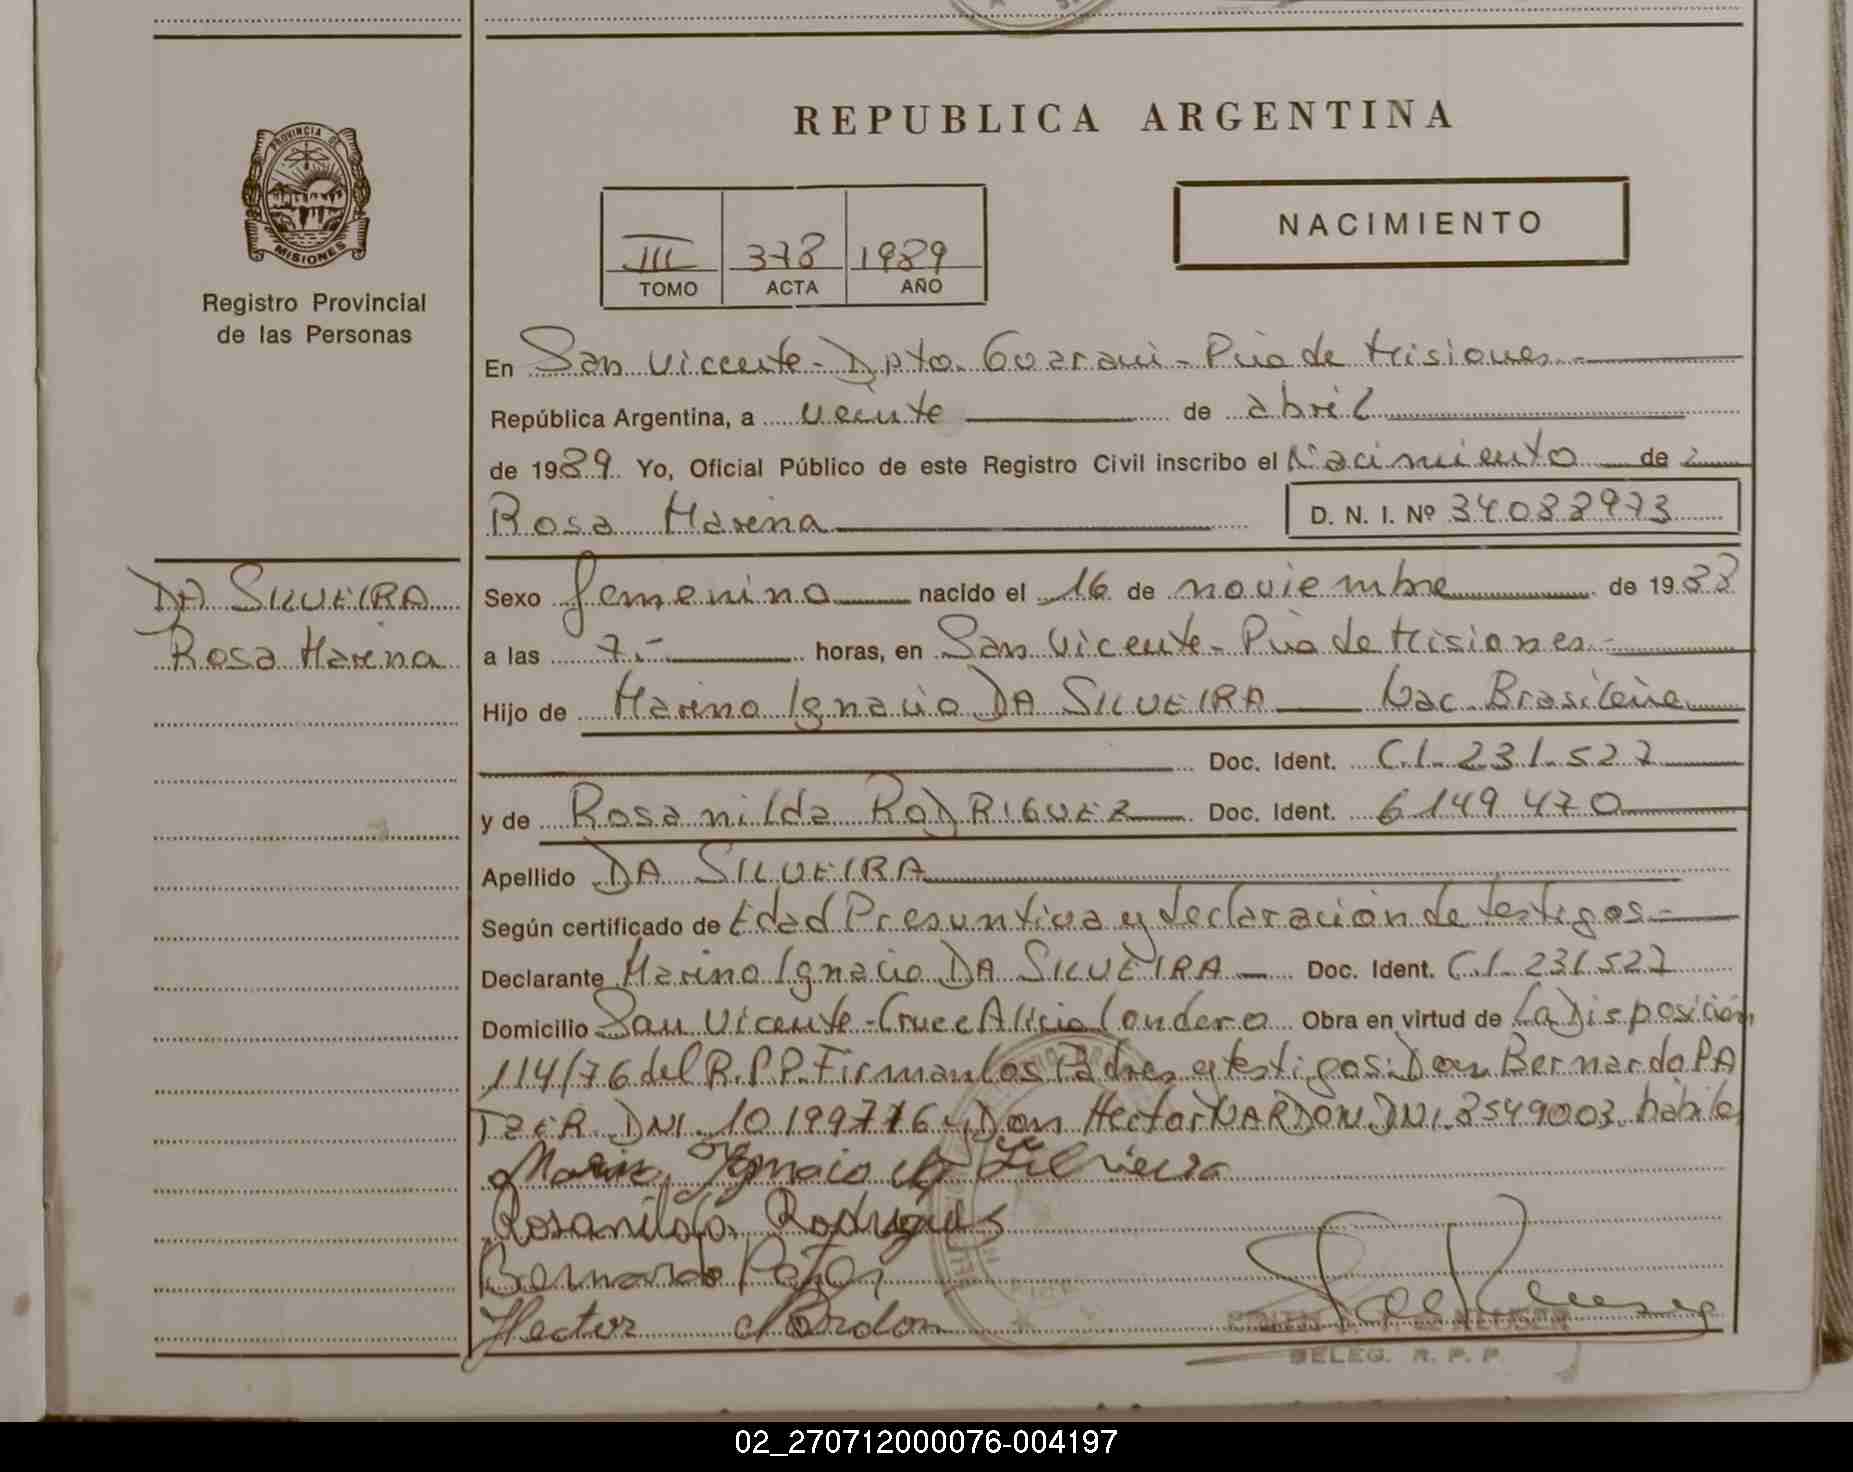 REPUBLICA ARGENTINA
PROVINCIA DE
MISIONES
Registro Provincial
de las Personas
III 378 1989
TOMO ACTA AÑO
NACIMIENTO
En San Vicente - Dpto. Guaraní - Pcia de Misiones.-
República Argentina, a veinte de abril
de 1989. Yo, Oficial Público de este Registro Civil inscribo el Nacimiento de
Rosa Marina D. N. I. Nº 34088973
DA SILVEIRA
Rosa Marina
Sexo femenino nacido el 16 de noviembre de 1988
a las 7.- horas, en San Vicente - Pcia de Misiones.-
Hijo de Marino Ignacio DA SILVEIRA Nac. Brasileña
Doc. Ident. C.I. 231.527
y de Rosanilda RODRIGUEZ Doc. Ident. 6149.470
Apellido DA SILVEIRA
Según certificado de Edad Presuntiva y declaración de testigos-
Declarante Marino Ignacio DA SILVEIRA Doc. Ident. C.I. 231.527
Domicilio San Vicente - Cruce Alicia Londero Obra en virtud de La Disposición
114/76 del R.P.P. Firman los Padres y testigos: Don Bernardo PA
TZER DNI. 10199716 y Don Hector NARDON DNI. 8549003. habiles
Marino Ignacio da Silveira
Rosanilda Rodrigues
Bernardo Patzer
Hector Nardon
DELEG. R. P. P.
02_270712000076-004197